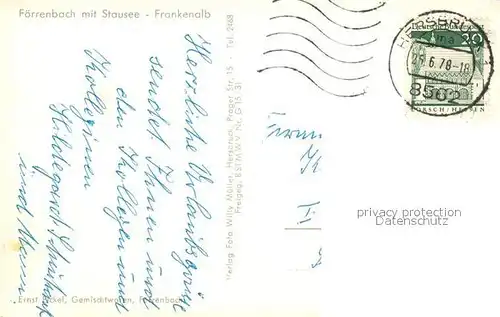 Förrenbach mit Stausee - Frankenalb
Herzliche Urlaubsgrüße
sendet Ihnen und
den Kollegen und
Kolleginnen
Hildegard
und Mann
Verlag Foto Willy Müller, Hersbruck, Prager Str. 15 - Tel. 2468
Freigeg. BSTMWV Nr. G
Ernst Gemischtwaren, Förrenbach
HERSBRUCK
6.78-18
8562
Deutsche Bundespost
20
LORSCH/HESSEN
privacy protection
Datenschutz